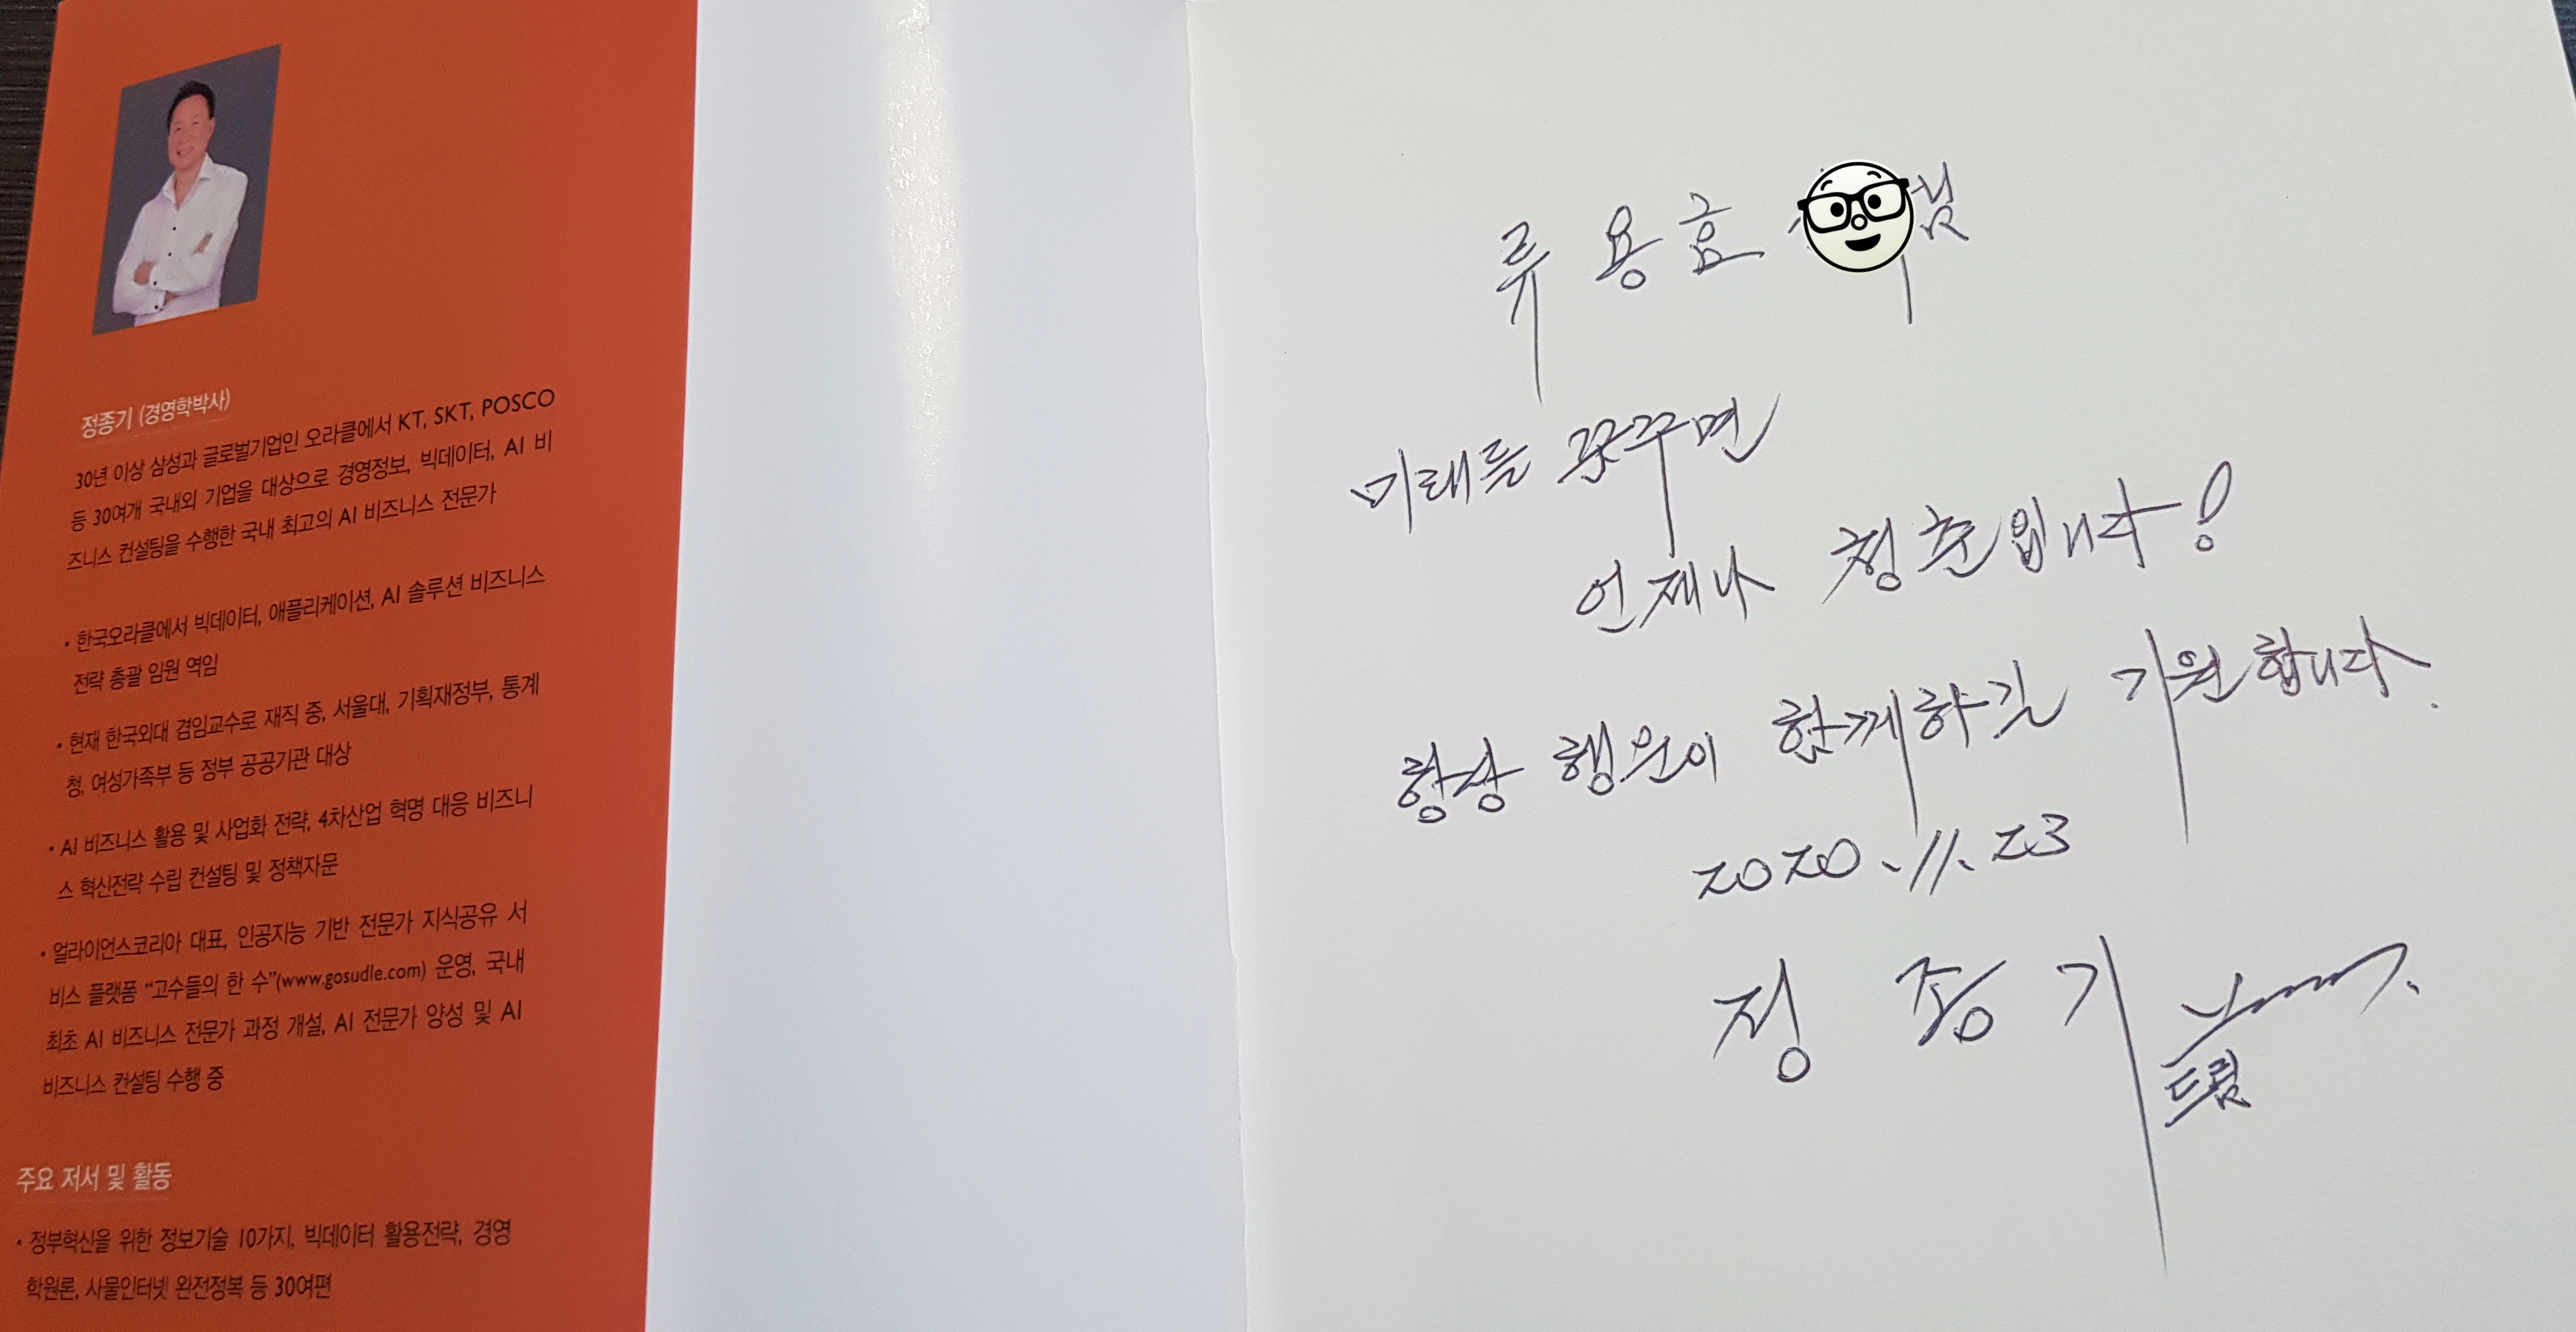 정종기 (경영학박사)
30년 이상 삼성과 글로벌기업인 오라클에서 KT, SKT, POSCO
등 30여개 국내외 기업을 대상으로 경영정보, 빅데이터, AI 비
즈니스 컨설팅을 수행한 국내 최고의 AI 비즈니스 전문가
• 한국오라클에서 빅데이터, 애플리케이션, AI 솔루션 비즈니스
전략 총괄 임원 역임
• 현재 한국외대 겸임교수로 재직 중, 서울대, 기획재정부, 통계
청, 여성가족부 등 정부 공공기관 대상
• AI 비즈니스 활용 및 사업화 전략, 4차산업 혁명 대응 비즈니
스 혁신전략 수립 컨설팅 및 정책자문
• 얼라이언스코리아 대표, 인공지능 기반 전문가 지식공유 서
비스 플랫폼 “고수들의 한 수”(www.gosudle.com) 운영, 국내
최초 AI 비즈니스 전문가 과정 개설, AI 전문가 양성 및 AI
비즈니스 컨설팅 수행 중
주요 저서 및 활동
• 정부혁신을 위한 정보기술 10가지, 빅데이터 활용전략, 경영
학원론, 사물인터넷 완전정복 등 30여편
류용효 님
미래를 꿈꾸면
언제나 청춘입니다!
항상 행운이 함께하길 기원합니다.
2020.11.23
정종기
드림